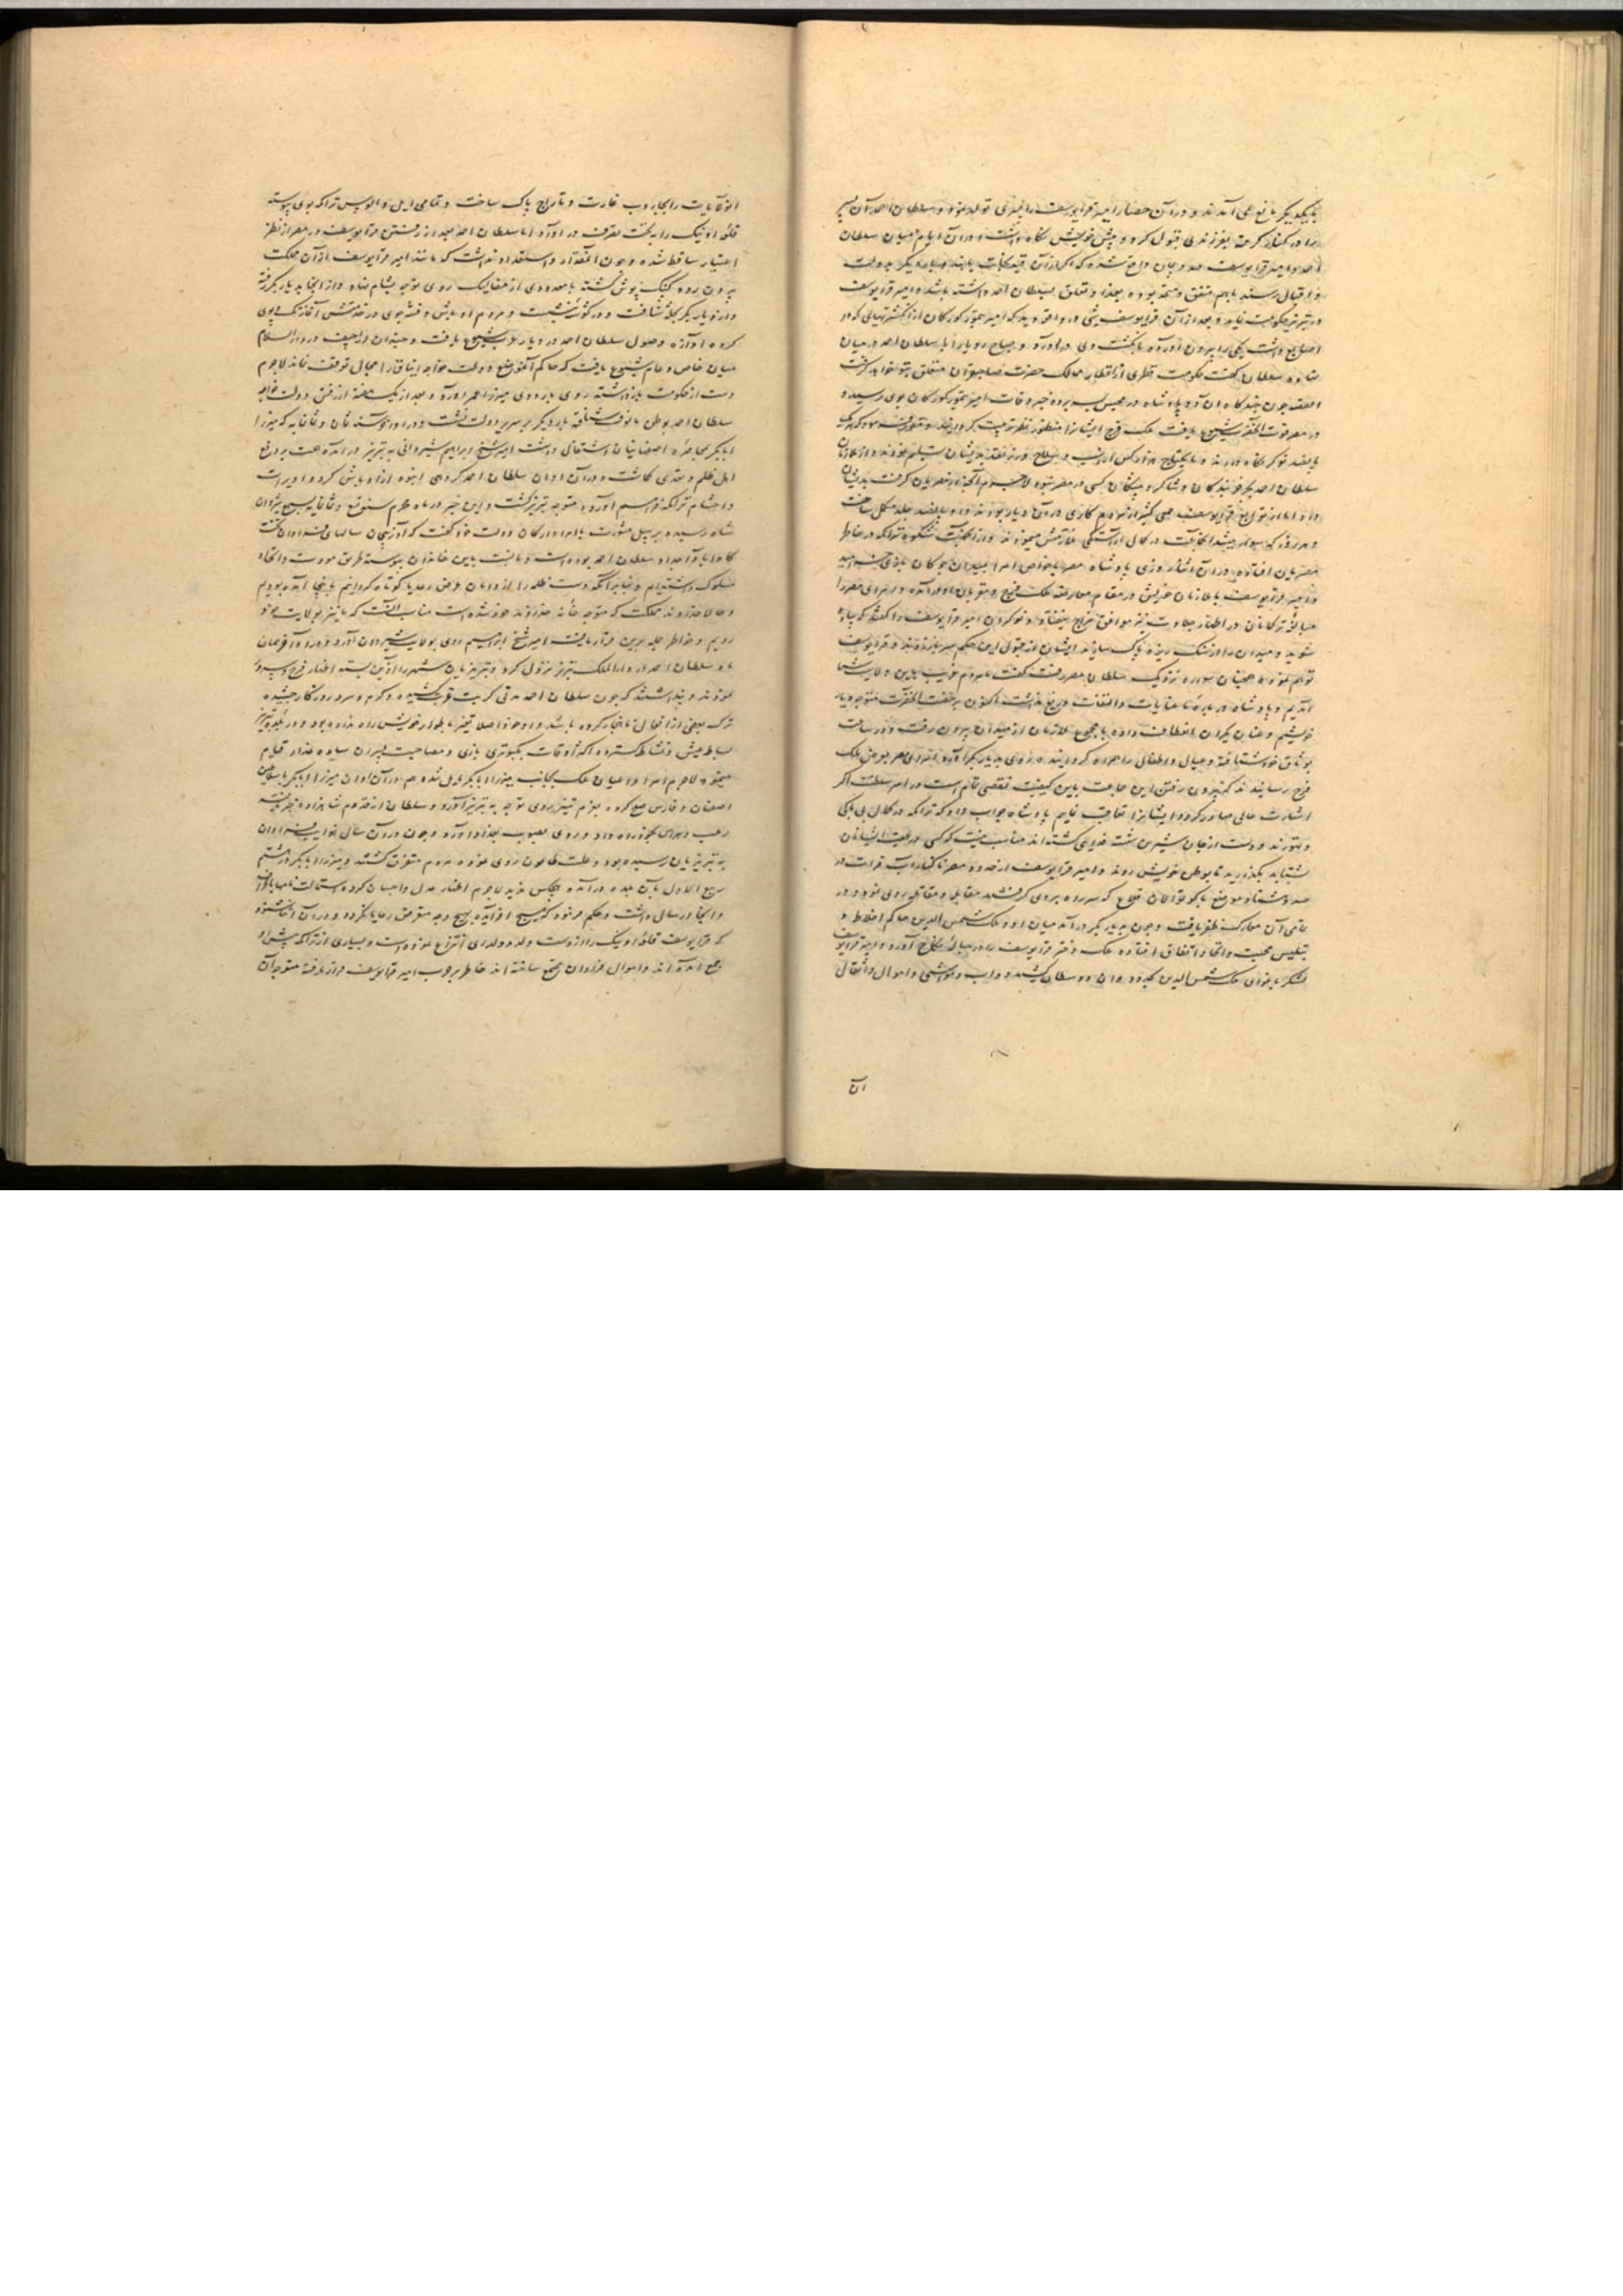 با یکدیگر مانع نمی آمدند و در آن حصار امیر قرایوسف را پسری تولد نمود و سلطان احمد آن پسر
را در کنار گرفته بفرزندی قبول کرد و پیش خویش نگاه داشت و در آن ایام میان سلطان
احمد و امیر قرایوسف عهد و پیمان واقع شده که اگر از آن قید نجات یابند و بار دیگر بدولت
و اقبال رسند باهم متفق و متحد بوده بغداد تعلق بسلطان احمد داشته باشد و امیر قرایوسف
در تبریز حکومت نماید و بعد از آن قرایوسف شبی در واقعه دید که امیر تیمور کورکان از انگشترینهایی که در
اصابع داشت یکی را بیرون آورده بانگشت وی در آورد و صباح رویا را با سلطان احمد در میان
نهاده سلطان گفت حکومت قطری از اقطار ممالک حضرت صاحبقران متعلق بتو خواهد گشت
القصه چون چندگاه آن دو پادشاه در محبس بسر برده خبر وفات امیر تیمور کورکان بوی رسید و
در مصر شیوع یافت ملک فرج ایشانرا منظور نظر تربیت گردانید و مقرر فرمود که هر یک
پانصد نوکر نگاه دارند و مایحتاج هزار کس از اسب و سلاح و زر نقد بدیشان تسلیم نمودند و از ملازمان
سلطان احمد بجز خربندگان و شاگرد پیشگان کسی در مصر نبود لاجرم
داد اما از توابع قرایوسف جمعی کثیر از مردم کاری در آن دیار بودند و او پانصد جلد مکمل ساخت
و هر روز که سوار میشد آن جماعت در کمال آراستگی ملازمتش مینمودند و از آن جهت شکوه تراکمه در خاطر
مصریان افتاده در آن اثنا روزی پادشاه مصر با خواص امرا بمیدان چوگان بازی خرامید
و امیر قرایوسف با ملازمان خویش در مقام معارضه ملک فرج و مقربان او در آمده و امرای مصر را
مبالغه ترکمانان در اظهار جلادت نیز موافق مزاج نیفتاد و نوکران امیر قرایوسف را گفتند که پیاده
شوید و میدان را از سنگ ریزه پاک سازید ایشان از قبول این حکم سر باز زدند و قرایوسف
توهم نموده همچنان سواره نزدیک سلطان مصر رفت و گفت ما مردم غریب بدین ولایت
آمدیم و پادشاه در باره ما عنایات و التفات دریغ نداشت اکنون برخصت آنحضرت متوجه دیار
خویشیم و عنان یکران انعطاف داده با مجموع ملازمان از میدان بیرون رفت و در ساعت
بوثاق خود شتافته و عیال و اطفال را همراه گردانیده روی بدیار بکر آورد امرای مصر بعرض ملک
فرج رسانیدند که بیرون رفتن این جماعت باین کیفیت نقصی تمام است در امر سلطنت اگر
اشارت عالی صادر گردد ایشانرا تعاقب نماییم پادشاه جواب داد که تراکمه در کمال بی باکی
و تهورند و دست از جان شیرین شسته فدایی گشته اند مناسب نیست که کسی در عقب ایشان
بشتابد بگذارید تا بوطن خویش روند و امیر قرایوسف از حدود مصر تا کنار آب فرات در
صد و هشتاد موضع با کوتوالان قلاع که سر راه بروی گرفتند مقابل و مقاتل روی نمود و در
تمامی آن معارک ظفر یافت و چون بدیار بکر در آمد میان او و ملک شمس الدین حاکم اخلاط و
بتلیس محبت و اتحاد اتفاق افتاده ملک دختر قرایوسف را در حباله نکاح آورد و امیر قرایوسف
لشکر باغوای ملک شمس الدین و وسطان کشید و دواب و مواشی و اموال و اثقال
آن
آن ولایت را بجاروب غارت و تاراج پاک ساخت و تمامی ایل و الوس تراکمه بوی پیوسته
قلعه اونیک را به تحت تصرف در آورد اما سلطان احمد بعد از رفتن قرایوسف در مصر از نظر
اعتبار ساقط شده و چون آنمقدار و استعداد نداشت که مانند امیر قرایوسف از آن مملکت
بیرون رود کپنک پوش گشته با معدودی از ممالیک روی توجه بشام نهاد و از آنجا بدیار بکر رفته
و از دیار بکر بحله شتافت و در گوشه نشست و مردم اوباش و فتنه جوی در خدمتش آغاز تکاپوی
کرده آوازه وصول سلطان احمد در دیار عرب شیوع یافت و چندان اراجیف در دار السلام
میان خاص و عام شیوع یافت که حاکم آنموضع دولت خواجه ایناق را مجال توقف نماند لاجرم
دست از حکومت بازداشته روی باردوی میرزا عمر آورد و بعد از یک هفته از رفتن دولت خواجه
سلطان احمد بوطن مالوف شتافته بار دیگر بر سریر دولت نشست و در اواخر سنه ثمان و ثمانمایه که میرزا
ابابکر بمحاصره اصفهانیان اشتغال داشت امیر شیخ ابراهیم شیروانی به تبریز در آمده همت بر دفع
اهل ظلم و تعدی گماشت و در آن اوان سلطان احمد گروهی انبوه از اوباش کرد و اویرات
و احشام تراکمه فراهم آورده متوجه تبریز گشت و این خبر در ماه محرم سنه تسع و ثمانمایه بسمع شروان
شاه رسیده بر سبیل مشورت با امرا و ارکان دولت خود گفت که آذربیجان سالهای فراوان تخت
گاه آبا و اجداد سلطان احمد بوده است و ما نسبت باین خاندان پیوسته طریق مودت و اتحاد
مسلوک داشته ایم و بنا بر آنکه دست ظلمه را از دامان عرض رعایا کوتاه گردانیم باینجا آمده بودیم
و حالا خداوند مملکت که متوجه خانه خود شده است مناسب آنست که ما نیز بولایت خود
رویم و خواطر جمله برین قرار یافت امیر شیخ ابراهیم روی بولایت شیروان آورد و در اواخر همان
ماه سلطان احمد در دار الملک تبریز نزول کرد و تبریزیان شهر را آذین بسته اظهار فرح و سرور
نمودند و پنداشتند که چون سلطان احمد مدتی کربت غربت کشیده و گرم و سرد روزگار چشیده
ترک بعضی از افعال ناهنجار کرده باشد و او خود اصلا تغیر باطوار خویش راه نداده بود و در بلده تبریز
بساط عیش و نشاط گسترده اکثر اوقات بکبوتر بازی و مصاحبت پسران ساده عذار قیام
مینمود لاجرم امرا و اعیان ملک بجانب میرزا ابابکر مایل شده هم در آن اوان میرزا ابابکر با سلاطین
اصفهان و فارس صلح کرده بعزم ستیز روی توجه به تبریز آورد و سلطان از قدوم شاهزاده خبر یافته
رعب و هراس بخود راه داد و روی بصوب بغداد آورد و چون در آن سال خرابی فراوان
به تبریزیان رسیده بود و علت طاعون روی نموده مردم متفرق گشتند و میرزا ابابکر در هشتم
ربیع الاول بآن بلده در آمده هیچکس ندید لاجرم اظهار عدل و احسان کرده استمالت نامها باطراف
و انحا ارسال داشت و حکم فرمود که هیچ آفریده بهیچ وجه متعرض رعایا نگردد و در آن اثنا شنود
که قرایوسف قلعه اونیک را از دست ولد دولدای انتزاع نموده است و بسیاری از تراکمه پیش او
جمع آمده اند و اموال فراوان مجتمع ساخته اند خاطر بر حرب امیر قرایوسف قرار یافته متوجه آن